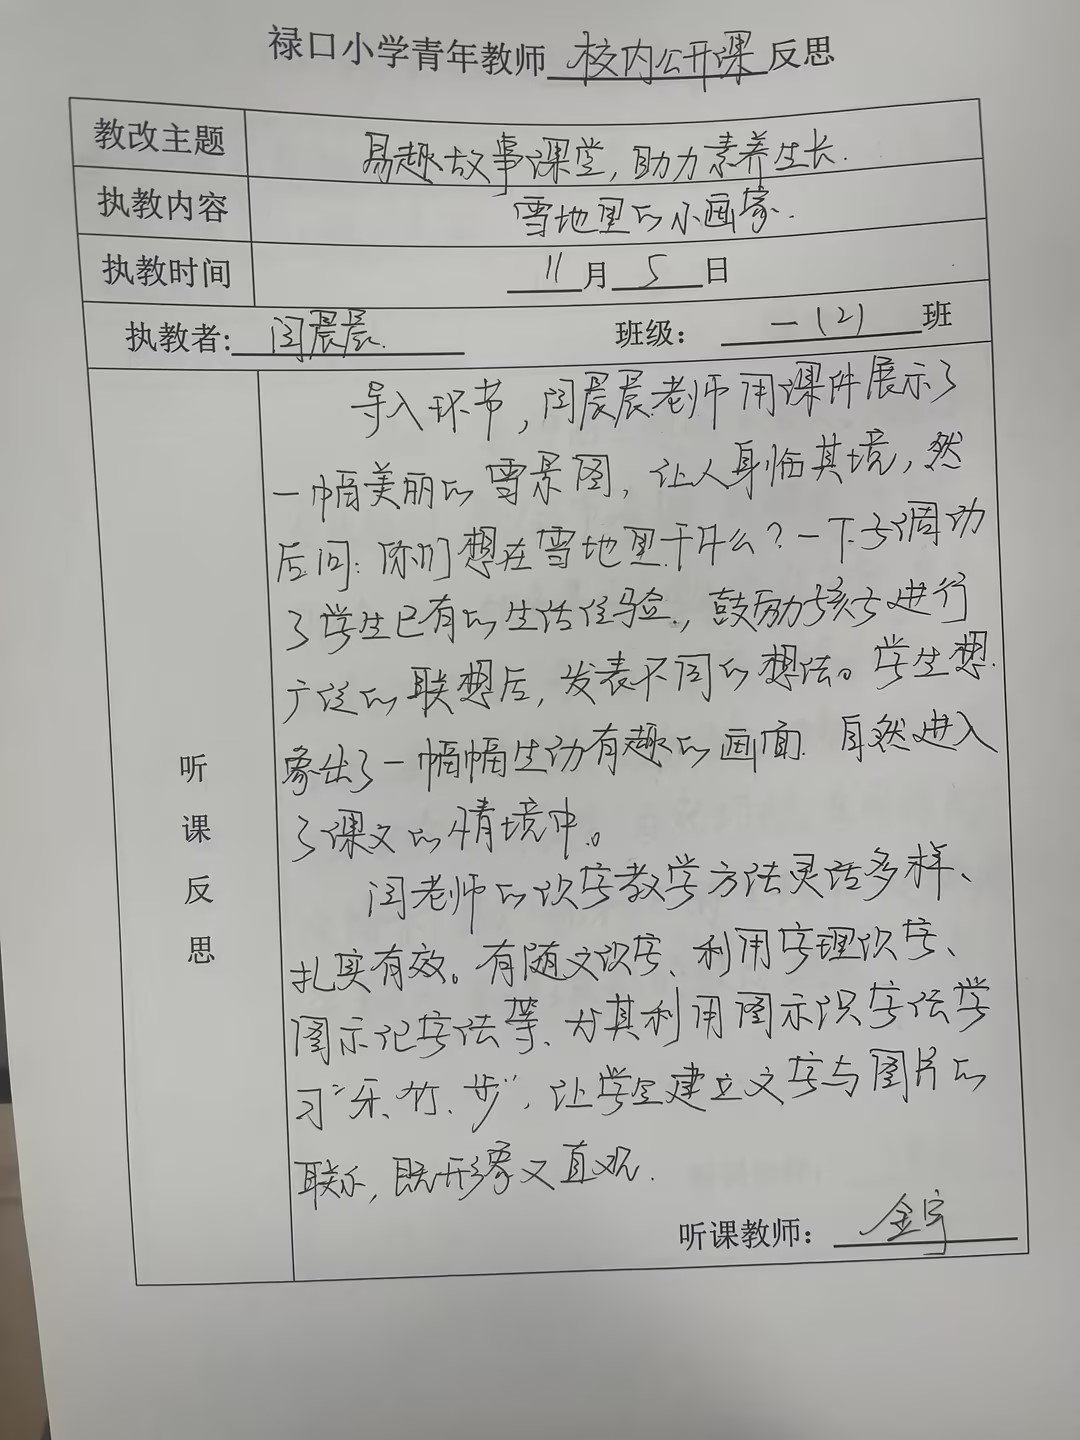 禄口小学青年教师 校内公开课 反思
教改主题 易趣故事课堂，助力素养生长.
执教内容 雪地里的小画家.
执教时间 11月5日
执教者: 闫晨晨. 班级: 一(2) 班
导入环节，闫晨晨老师用课件展示了
一幅美丽的雪景图，让人身临其境，然
后问：你们想在雪地里干什么？一下子调动
了学生已有的生活经验，鼓励孩子进行
广泛的联想后，发表不同的想法。学生想
象出了一幅幅生动有趣的画面. 自然进入
了课文的情境中。
闫老师的识字教学方法灵活多样、
扎实有效。有随文识字、利用字理识字、
图示记字法等、尤其利用图示识字法学
习“乐、竹、步”，让学生建立文字与图片的
联系，既形象又直观.
听课反思
听课教师: 金宇